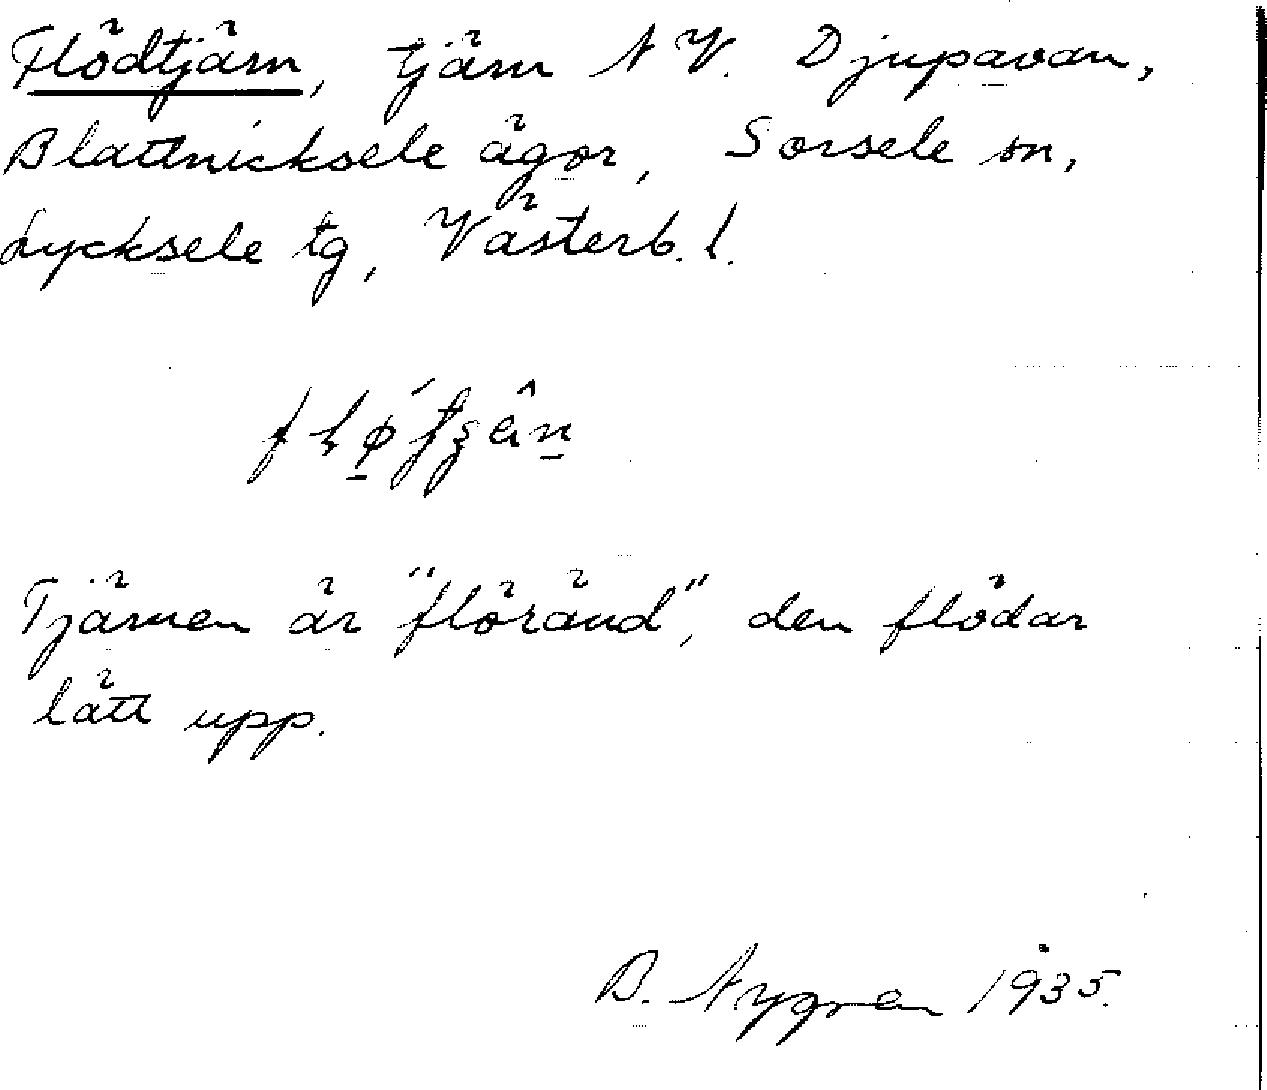 Flödtjärn, tjärn NV. Djupavan,
Blattnicksele ägor, Sorsele sn,
Lycksele tg, Västerb. l.
Tjärnen är "flöränd", den flödar
lätt upp.
B. Nygren 1935.